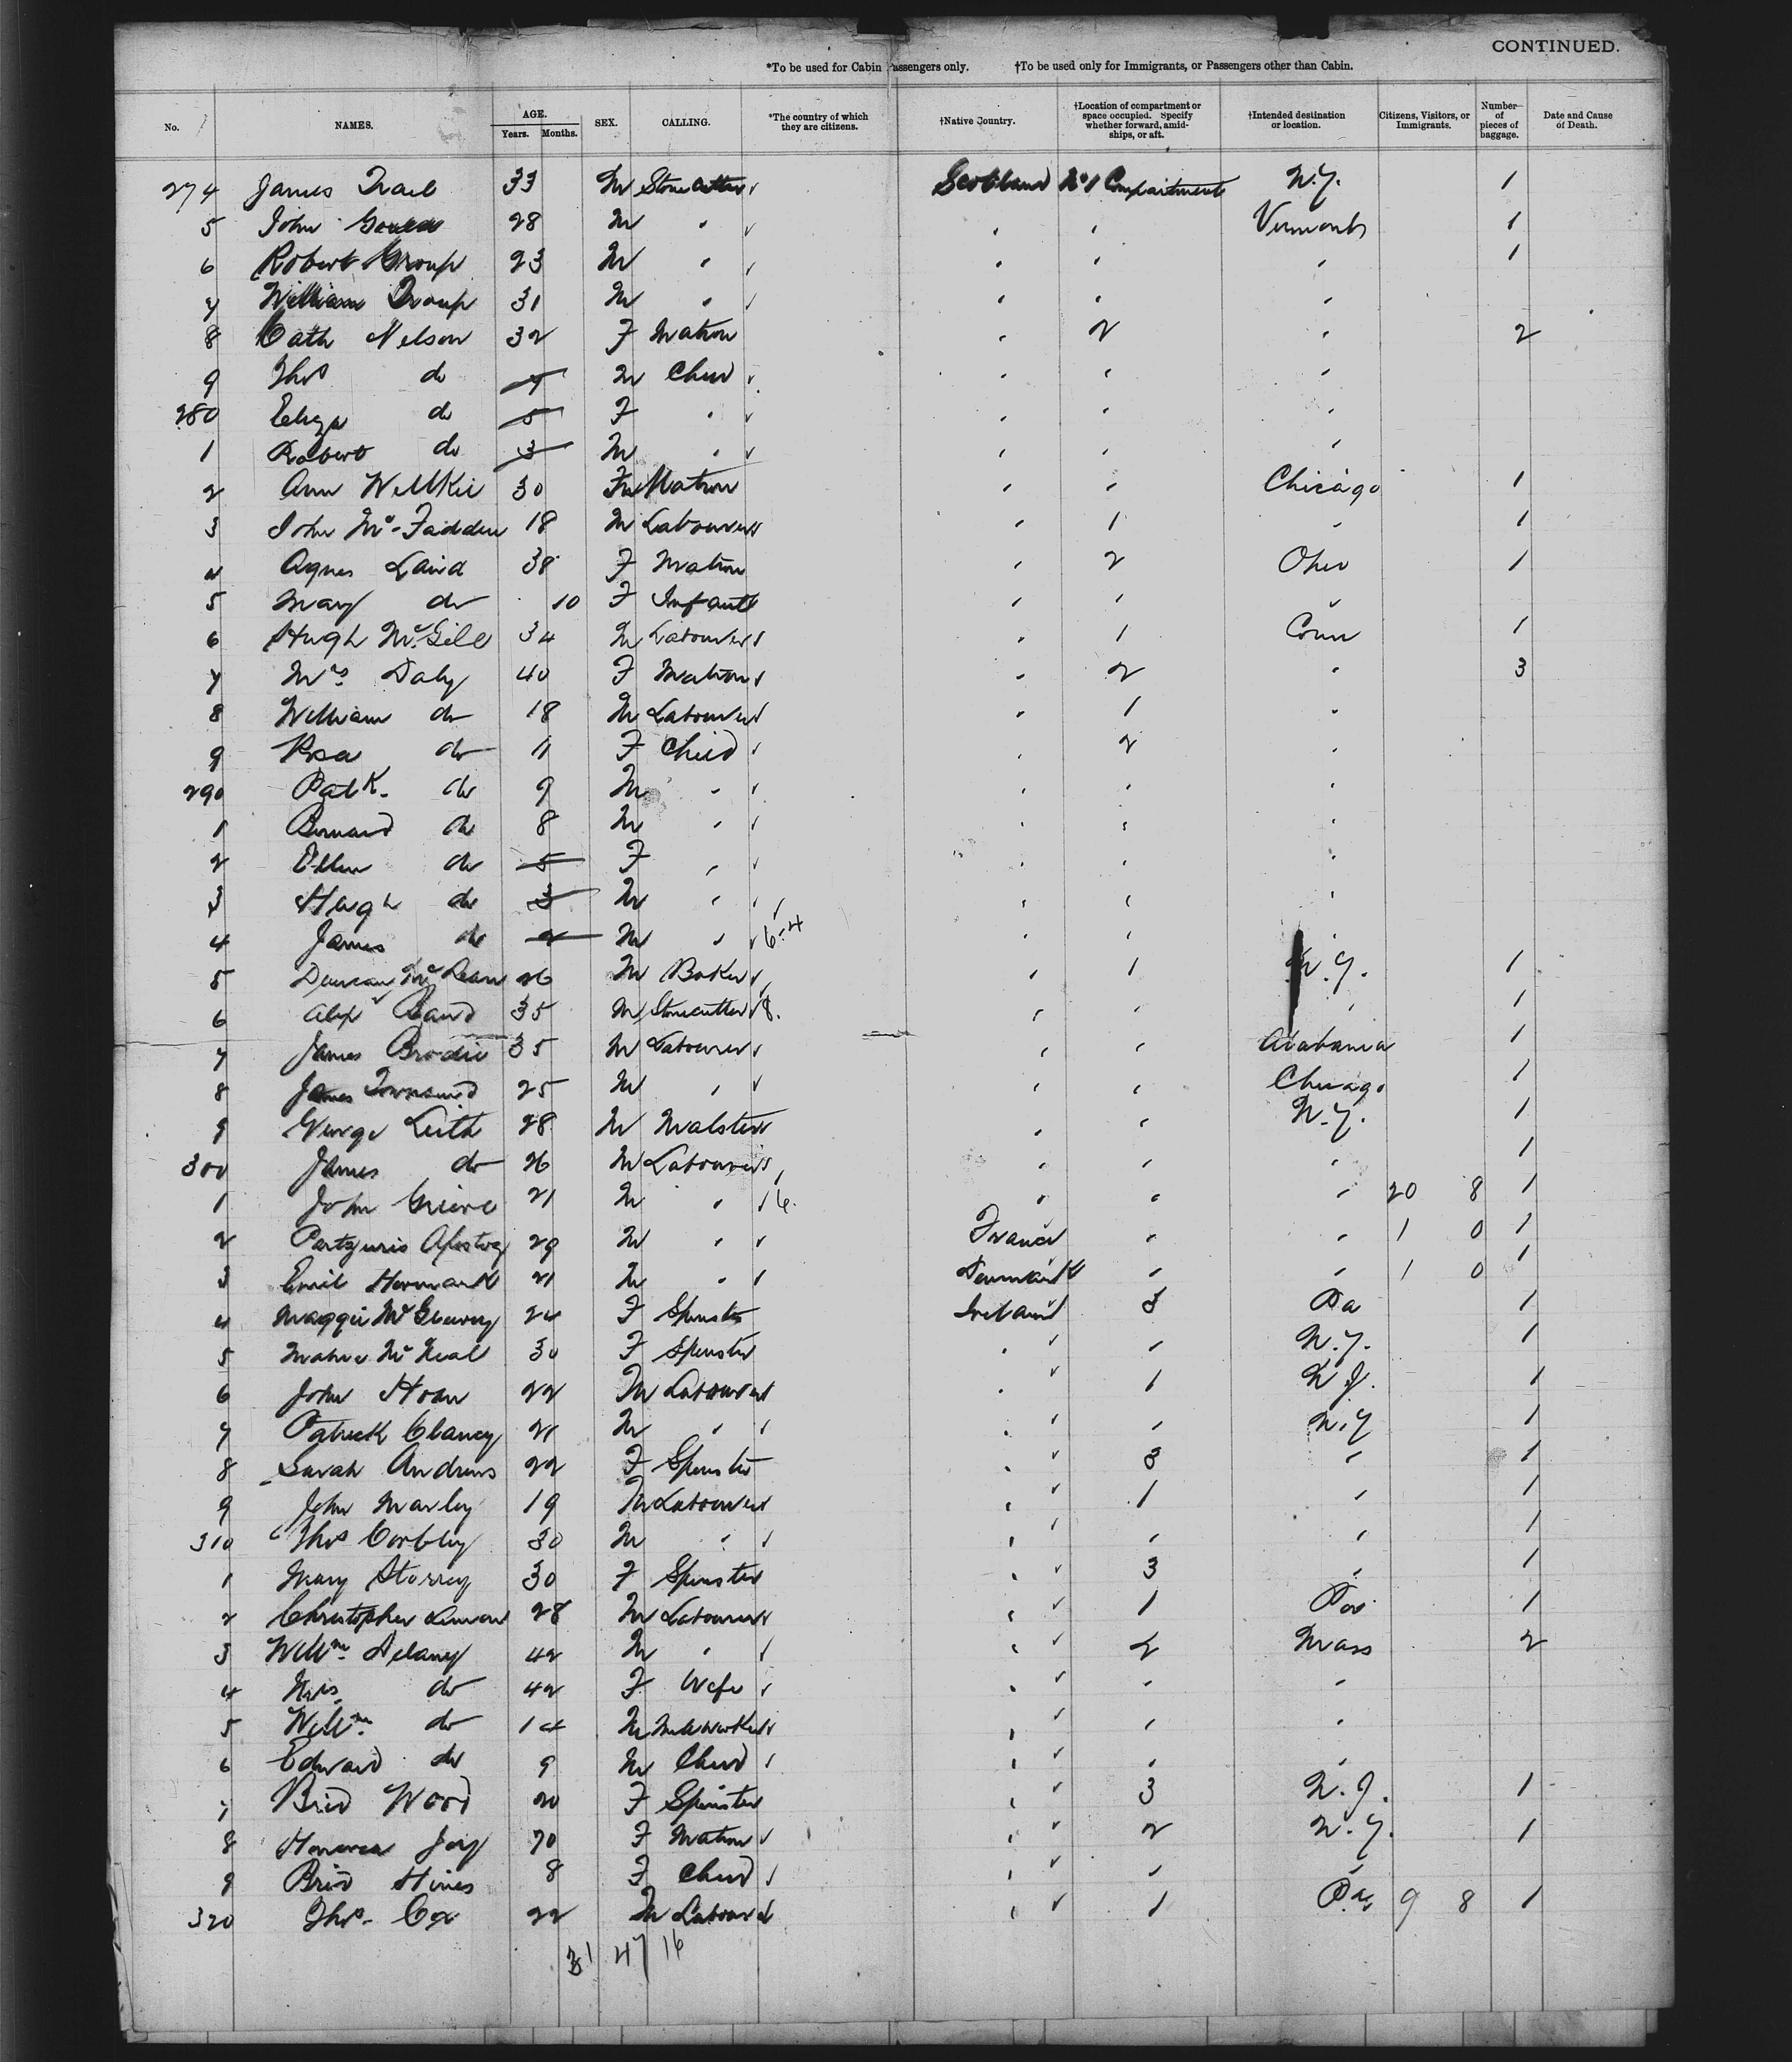 CONTINUED.
*To be used for Cabin Passengers only. †To be used only for Immigrants, or Passengers other than Cabin.
No. NAMES. AGE. Years. Months. SEX. CALLING. *The country of which they are citizens. †Native Country. †Location of compartment or space occupied. Specify whether forward, amidships, or aft. †Intended destination or location. Citizens, Visitors, or Immigrants. Number of pieces of baggage. Date and Cause of Death.
274 James Trail 33 M Stonecutter Scotland No 1 Compartment N.Y. 1
5 John 28 M " " " Vermont 1
6 Robert Group 23 M " " " " 1
7 William Troup 31 M " " " "
8 Cath Nelson 32 F Matron " 2 " 2
9 Thos do 7 M Child " " "
280 Eliza do 5 F " " " "
1 Robert do 3 M " " " "
2 Ann Willkie 30 F Matron " " Chicago 1
3 John Mc Fadden 18 M Labourer " 1 " 1
4 Agnes Laird 38 F Matron " 2 Ohio 1
5 Mary do 10 F Infant " " "
6 Hugh McGill 34 M Labourer " 1 Conn 1
7 Mrs. Daly 40 F Matron " 2 " 3
8 William do 18 M Labourer " 1 "
9 Rosa do 11 F Child " 2 "
290 Patk. do 9 M " " " "
1 Bernard do 8 M " " " "
2 Ellen do 5 F " " " "
3 Hugh do 3 M " " " "
4 James do 2 M " 6-4 " " "
5 Duncan McLean 26 M Baker " 1 N.Y. 1
6 Alexr Baird 35 M Stonecutter 8. " " " 1
7 James Brodie 35 M Labourer " " Alabama 1
8 James Townsend 25 M " " " Chicago 1
9 George Leith 28 M Malster " " N.Y. 1
300 James do 26 M Labourer " " " 1
1 John Grieve 21 M " 6. " " " 20 8 1
2 29 M " France " " 1 0 1
3 Emil 21 M " Denmark " " 1 0 1
4 Maggie Mc 24 F Spinster Ireland 3 Pa 1
5 Mc Neal 30 F Spinster " " N.Y. 1
6 John Hoan 22 M Labourer " 1 N.J. 1
7 Patrick Clancy 21 M " " " N.Y 1
8 Sarah Andrews 22 F Spinster " 3 " 1
9 John Marley 19 M Labourer " 1 " 1
310 Thos Corbley 30 M " " " " 1
1 Mary Storrey 30 F Spinster " 3 " 1
2 Christopher 28 M Labourer " 1 Pa 1
3 Willm. Delaney 42 M " " 2 Mass 2
4 Mrs. do 42 F Wife " " "
5 Willm. do 14 M Millworker " " "
6 Edward do 9 M Child " " "
7 Brid Wood 20 F Spinster " 3 N.J. 1
8 Honorea Joy 70 F Matron " 2 N.Y. 1
9 Brid Hines 8 F Child " " "
320 Thos. Cox 22 M Labourer " 1 Pa. 9 8 1
31 47 16